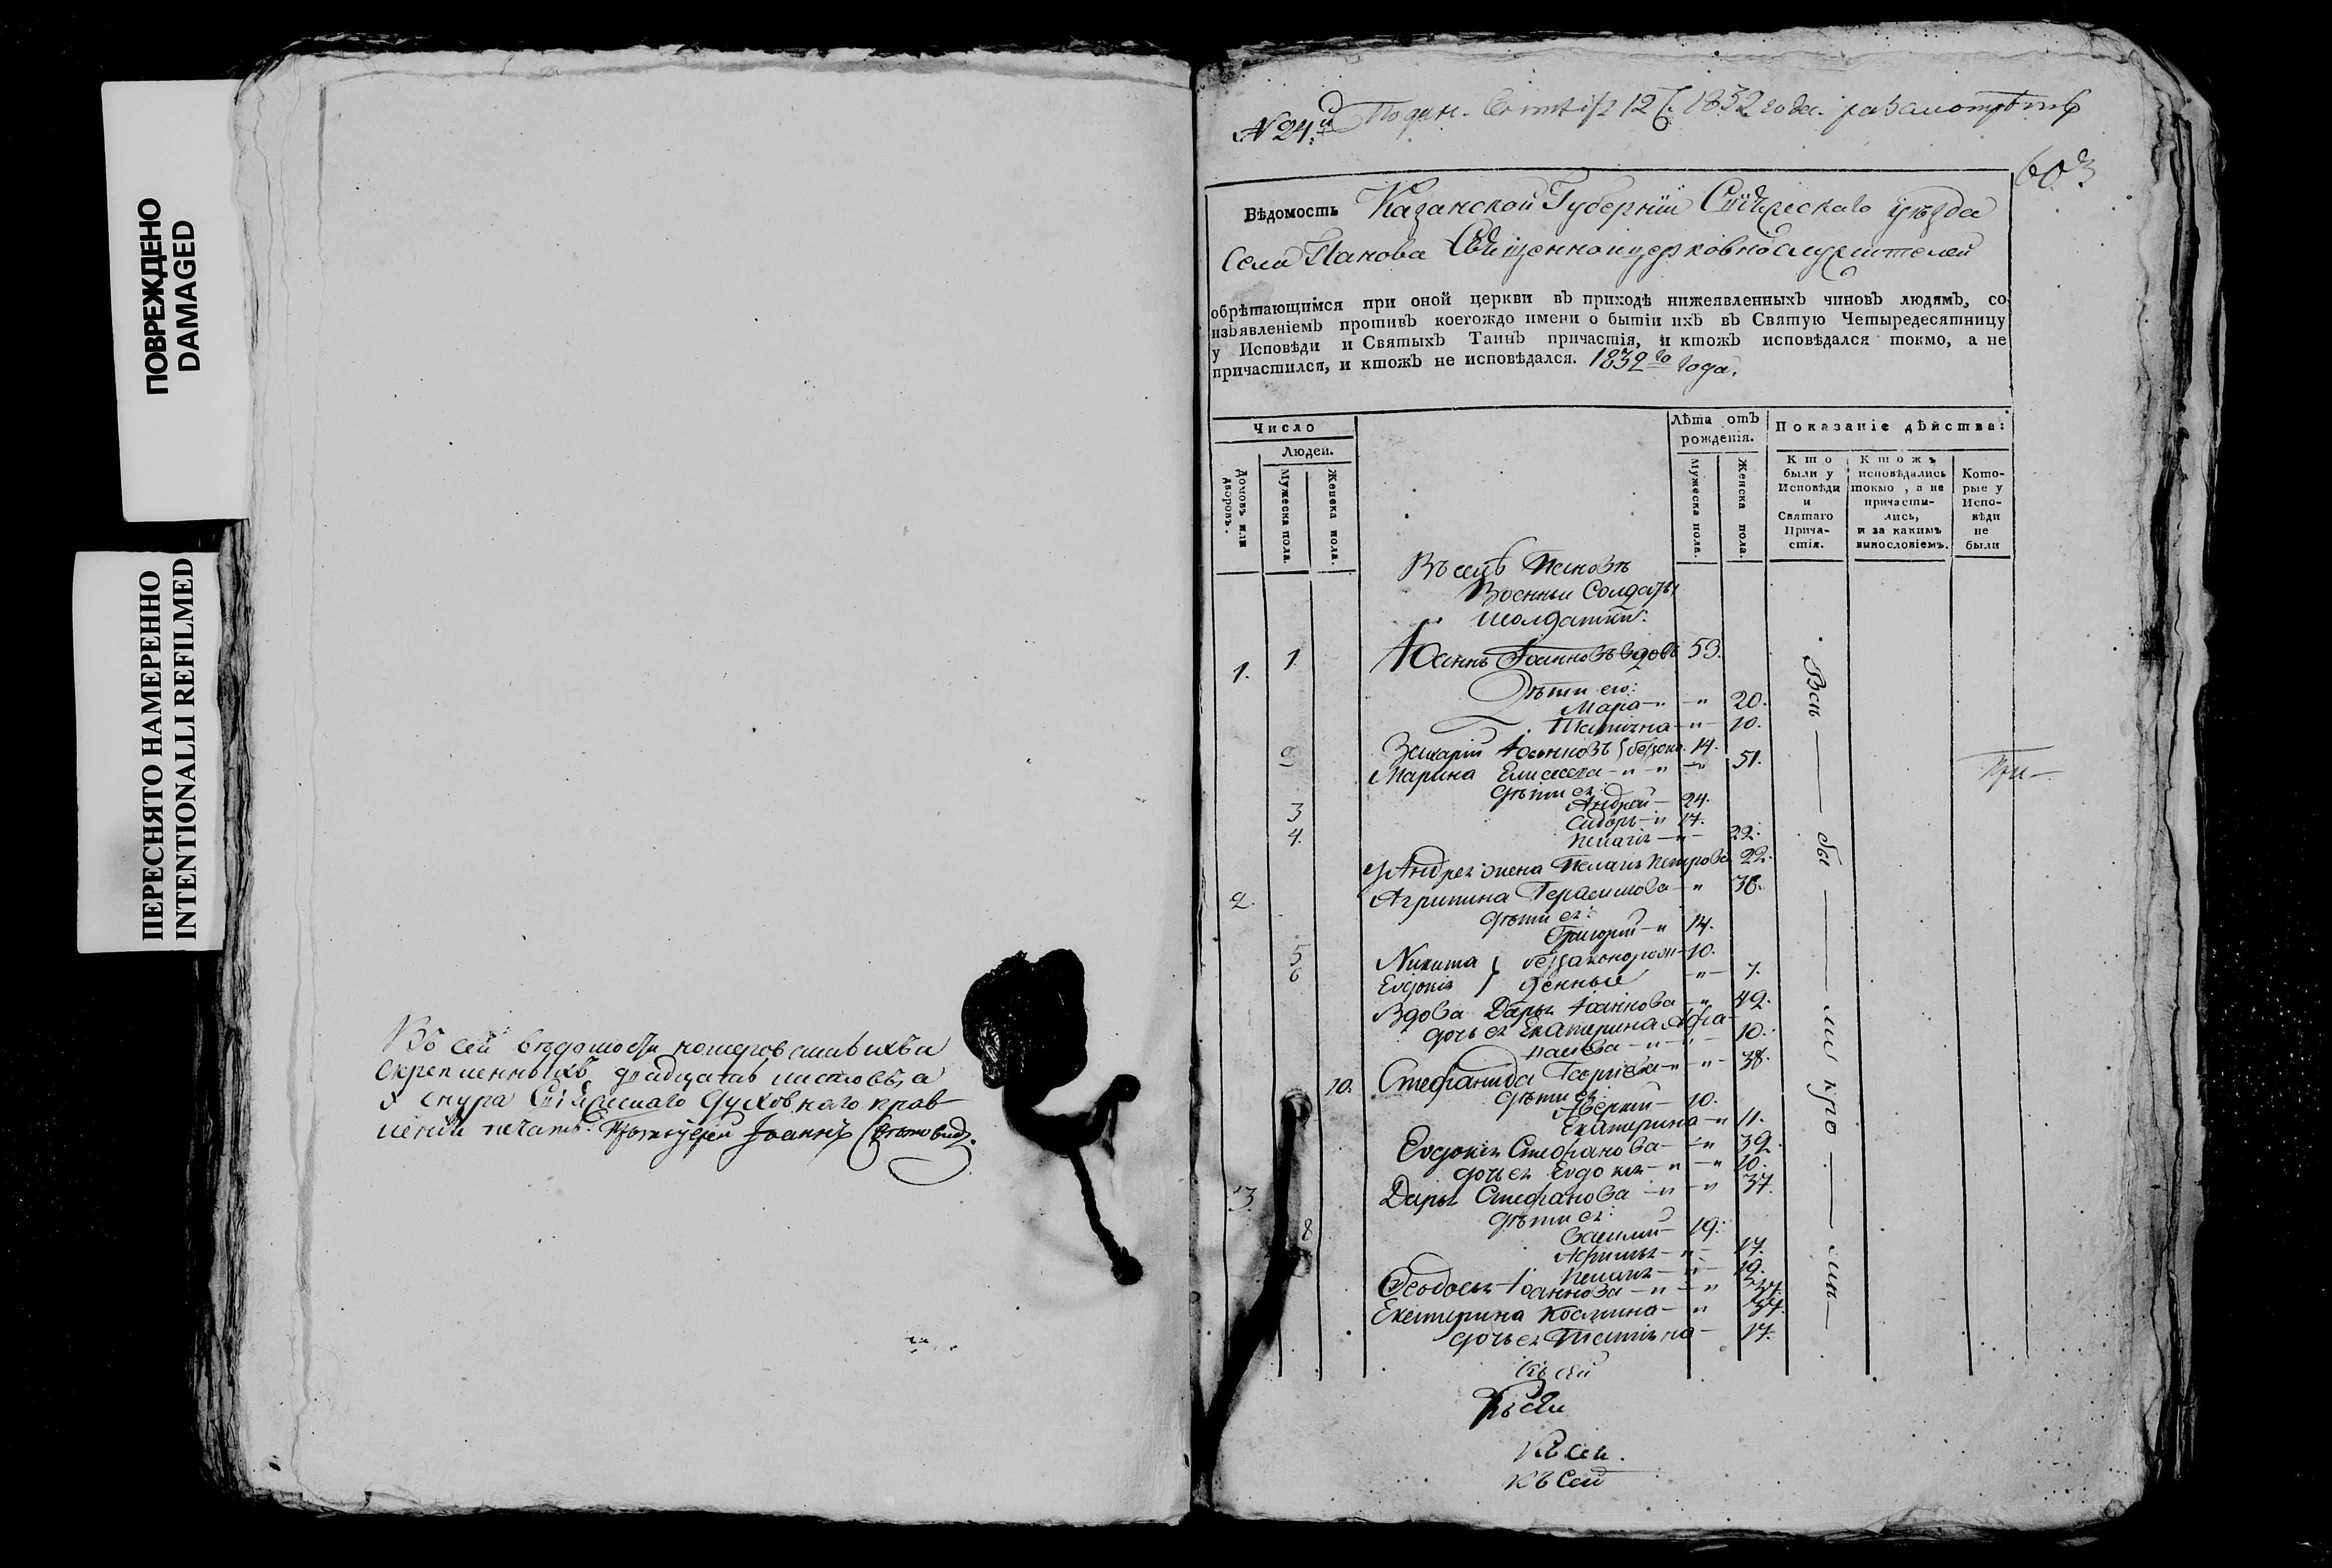 ПОВРЕЖДЕНО
DAMAGED
ПЕРЕСНЯТО НАМЕРЕННО
INTENTIONALLI REFILMED
Въ сей ведомости номеровнныхъ и
скрепленныхъ двадцать листовъ, а
у снура Свіяжскаго Духовнаго прав
ленія печать. Протоіерей Іоаннъ
№ 24й
1832 года
603
Вѣдомость Казанской Губерніи Свіяжскаго уѣзда
Села Панова Священноицерковнослужителей
обрѣтающимся при оной церкви въ приходѣ нижеявленныхъ чиновъ людямъ, со
изъявленіемъ противъ коегождо имени о бытіи ихъ въ Святую Четыредесятницу
у Исповѣди и Святыхъ Таинъ причастія, и ктожъ исповѣдался токмо, а не
причастился, и ктожъ не исповѣдался. 1832го года.
Число
Людей.
Домовъ или дворовъ.
Мужеска пола.
Женска пола.
Лѣта отъ рожденія.
Мужеска пола.
Женска пола.
Показаніе дѣйства:
Кто были у Исповѣди и Святаго Причастія.
Ктожъ исповѣдались токмо, а не причастились, и за какимъ винословіемъ.
Которые у Исповѣди не были
Въ селѣ Пановѣ
Военныи Солдаты
исолдатки:
1. 1 Іоаннъ Іоанновъ вдовъ 53.
Дѣти его:
Мара 20.
Татіяна 10.
Захарій Іоанновъ 14.
Марина Елисеева 51.
дѣти ея:
3 Андрей 24.
4. Сидоръ 17.
Пелагія 22.
У Андрея жена Пелагія Петрова 22.
2. Агрипина Герасимова 38.
дѣти ея:
Григорій 14.
5 Никита } беззаконорож 10.
6 Евдокія } денные 7.
Вдова Дарья Іоаннова 49.
дочь ея Екатерина Афа
насьева 10.
10. Стефанида Георгіева 38.
дѣти ея:
Аверкій 10.
Екатерина 11.
Евдокія Стефанова 39.
дочь ея Евдокія 10.
3. Дарья Стефанова 37.
дѣти ея:
8 Василій 19.
17.
Пелагія 10.
Феодосья Іоаннова 37.
Екатерина Космина 37.
дочь ея Татіяна 17.
Всѣ — бы — ли
Къ сей
Къ сей
Къ сей.
Къ Сей